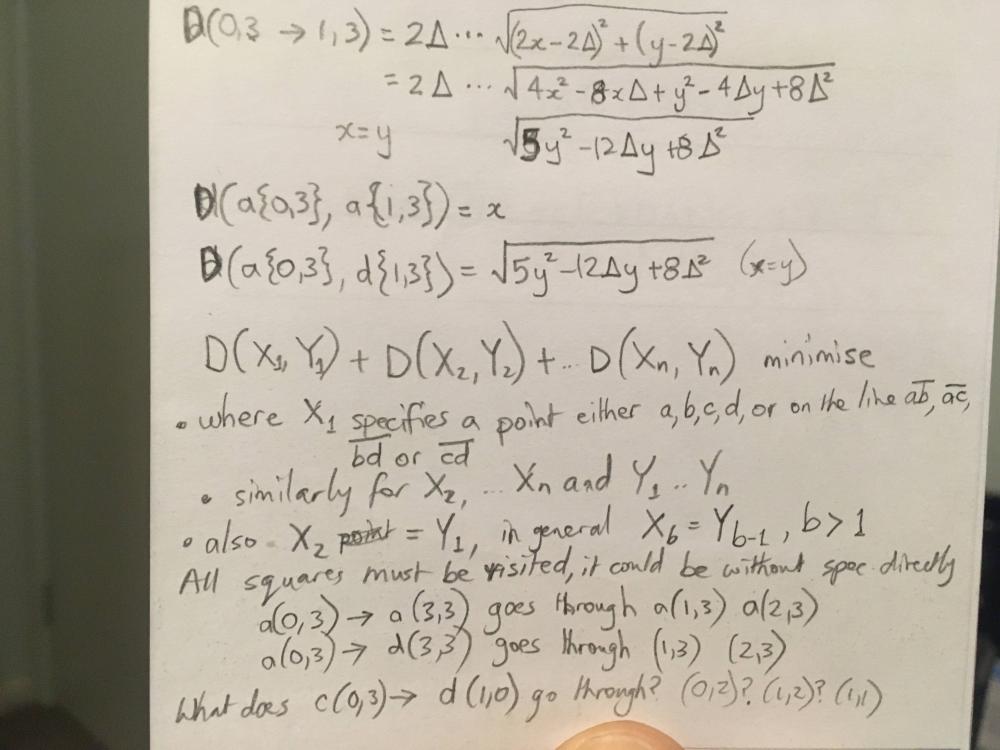 D(0,3 → 1,3) = 2Δ ... √(2x-2Δ)² + (y-2Δ)²
= 2Δ ... √4x² - 8xΔ + y² - 4Δy + 8Δ²
x=y √5y² - 12Δy + 8Δ²
D(a{0,3}, a{1,3}) = x
D(a{0,3}, d{1,3}) = √5y² - 12Δy + 8Δ² (x=y)
D(X₁, Y₁) + D(X₂, Y₂) + ... D(Xn, Yn) minimise
• where X₁ specifies a point either a,b,c,d, or on the line a̅b̅, a̅c̅,
b̅d̅ or c̅d̅
• similarly for X₂, ... Xn and Y₁ .. Yn
• also X₂ point = Y₁, in general X_b = Y_b-1, b > 1
All squares must be visited, it could be without spec. directly
a(0,3) → a(3,3) goes through a(1,3) a(2,3)
a(0,3) → d(3,3) goes through (1,3) (2,3)
What does c(0,3) → d(1,0) go through? (0,2)? (1,2)? (1,1)